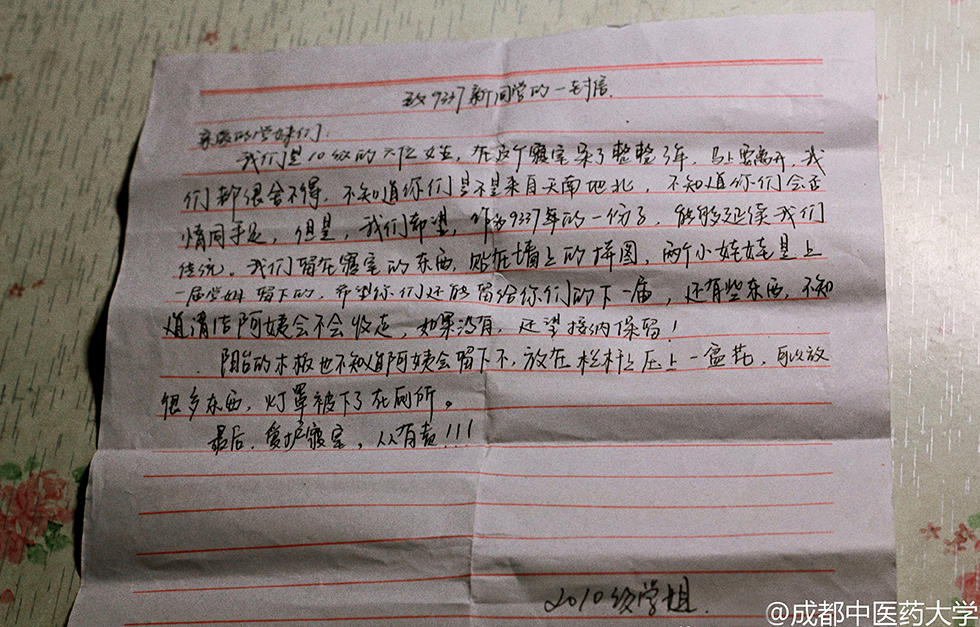 致9337新同学的一封信
亲爱的学妹们:
我们是10级的六位女生,在这个寝室呆了整整3年,马上要离开,我
们都很舍不得,不知道你们是不是来自天南地北,不知道你们会否
情同手足,但是,我们希望,作为9337的一份子,能够延续我们
传统。我们留在寝室的东西,贴在墙上的拼图,两个小娃娃是上
一届学姐留下的,希望你们还能留给你们的下一届,还有些东西,不知
道清洁阿姨会不会收走,如果没有,还望接纳保留!
阳台的木板也不知道阿姨会留下不,放在栏杆上压上一盆花,可以放
很多东西,灯罩被下了在厕所。
最后,爱护寝室,人人有责!!!
2010级学姐.
@成都中医药大学